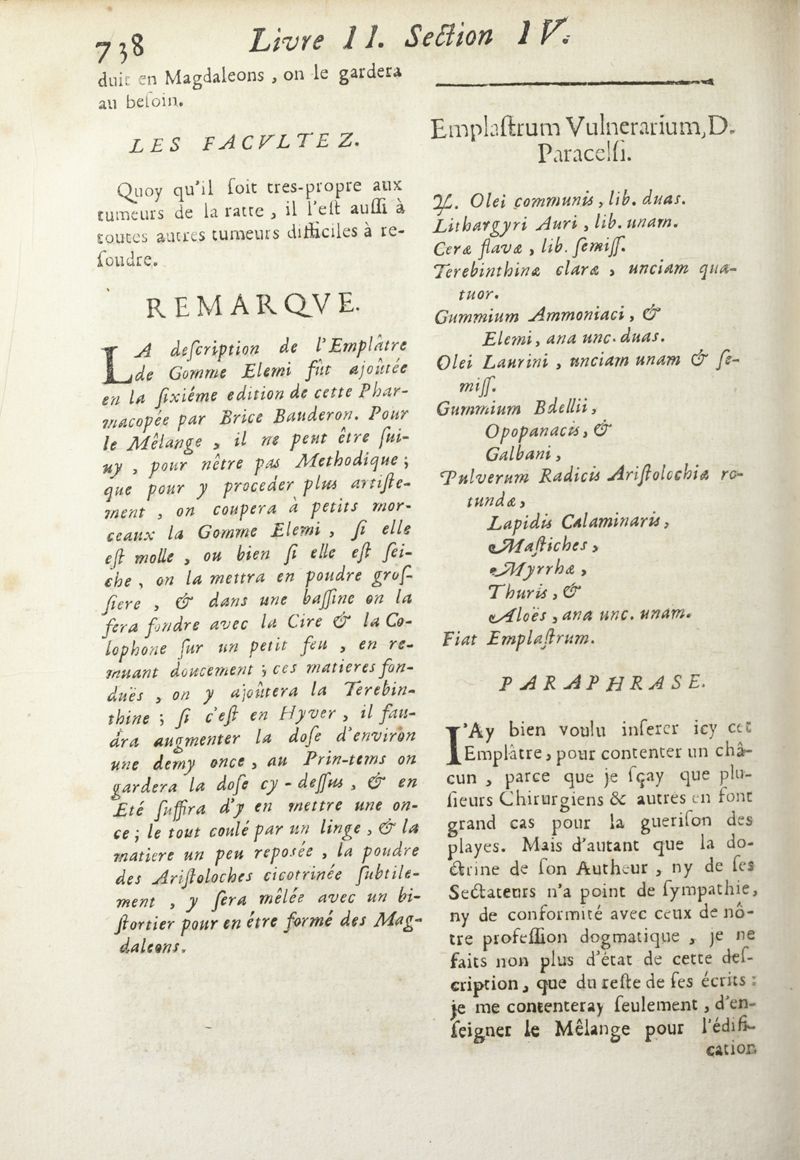 738 Livre II. Section IV.
duit en Magdaleons , on le gardera
au besoin.
LES FACVLTEZ.
Quoy qu'il soit tres-propre aux
tumeurs de la ratte , il l'est aussi à
toutes autres tumeurs difficiles à re-
soudre.
REMARQVE.
LA description de l'Emplâtre
de Gomme Elemi fût ajoûtée
en la sixiéme edition de cette Phar-
macopée par Brice Bauderon. Pour
le Mêlange , il ne peut être sui-
uy , pour nêtre pas Methodique ;
que pour y proceder plus artiste-
ment , on coupera à petits mor-
ceaux la Gomme Elemi , si elle
est molle , ou bien si elle est sei-
che , on la mettra en poudre gros-
siere , & dans une bassine on la
fera fondre avec la Cire & la Co-
lophone sur un petit feu , en re-
muant doucement ; ces matieres fon-
duës , on y ajoûtera la Terebin-
thine ; si c'est en Hyver , il fau-
dra augmenter la dose d'environ
une demy once , au Prin-tems on
gardera la dose cy-dessus , & en
Eté suffira d'y en mettre une on-
ce ; le tout coulé par un linge , & la
matiere un peu reposée , la poudre
des Aristoloches cicotrinée subtile-
ment , y sera mêlée avec un bi-
stortier pour en étre formé des Mag-
daleons.
Emplastrum Vulnerarium, D.
Paracelsi.
♃. Olei communis , lib. duas.
Lithargyri Auri , lib. unam.
Ceræ flavæ , lib. semiss.
Terebinthinæ claræ , unciam qua-
tuor.
Gummium Ammoniaci , &
Elemi, ana unc. duas.
Olei Laurini , unciam unam & se-
miss.
Gummium Bdellii ,
Opopanacis , &
Galbani ,
Pulverum Radicis Aristolochiæ ro-
tundæ ,
Lapidis Calaminaris ,
Mastiches ,
Myrrhæ ,
Thuris , &
Aloës , ana unc. unam.
Fiat Emplastrum.
PARAPHRASE.
I'Ay bien voulu inserer icy cet
Emplâtre, pour contenter un chà-
cun , parce que je sçay que plu-
sieurs Chirurgiens & autres en font
grand cas pour la guerison des
playes. Mais d'autant que la do-
ctrine de son Autheur , ny de ses
Sectateurs n'a point de sympathie,
ny de conformité avec ceux de nô-
tre profession dogmatique , je ne
faits non plus d'état de cette des-
cription , que du reste de ses écrits :
je me contenteray seulement , d'en-
seigner le Mêlange pour l'édifi-
cation